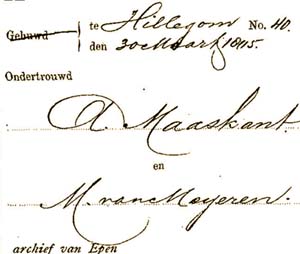 Gehuwd te Hillegom No. 40.
den 30 Maart 1915.
Ondertrouwd
A. Maaskant.
en
M. van Meyeren.
archief van Epen